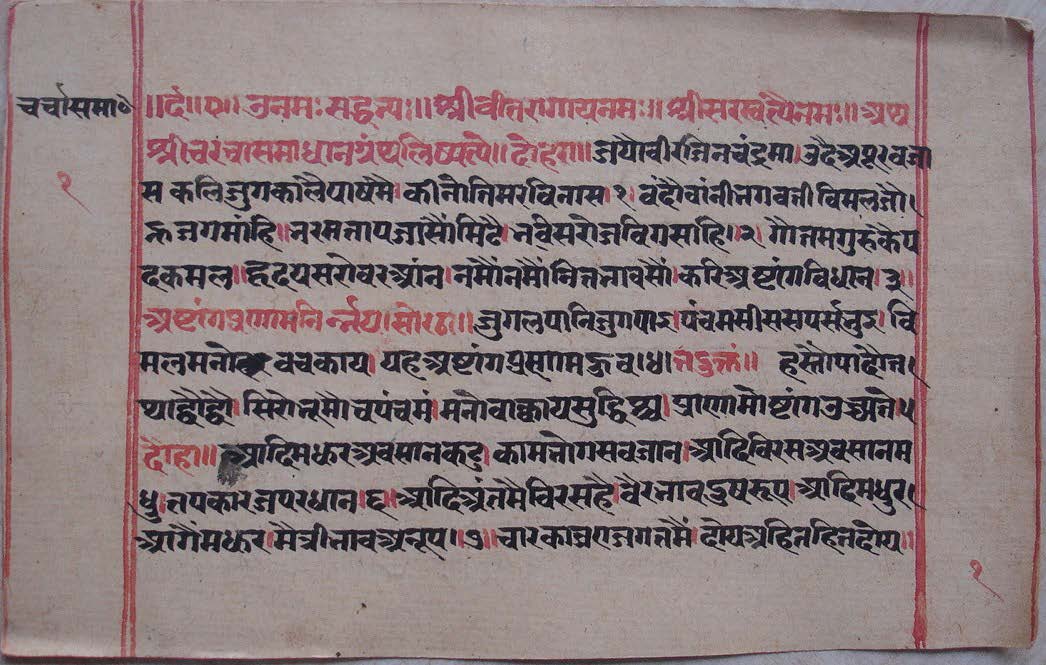 चर्चासमा०
॥र्द॥०॥ ॐनमः सद्धेभ्यः॥ श्रीवीतरागायनमः॥ श्रीसरस्वत्यैनमः॥ अथ
श्रीचरचासमाधानग्रंथलिष्यते॥ दोहरा॥ जयौवीरजिनचंद्रमा। उदैअपूरवजा
स कलिजुगकालैपाषमै। कीनौतिमरविनास। १। वंदौवांनीभगवती विमलजौ।
न्हजगमांहि। भरमतापजासौंमिटै। भविसरोजविगसांहि। २। गौतमगुरुकेप
दकमल। हृदयसरोवरआंन। नमौंनमौंनितभावसौं। करिअष्टांगविधान। ३॥
अष्टांगप्रणामनिर्न्नय। सोरठा॥ जुगलपानिजुगपाइ। पंचमसीससपर्सभुइ। वि
मलमनो वचकाय। यह अष्टांगप्रणामहुव। ४। तदुक्तं॥ हस्तौपादौत।
थाद्वौद्वौ। सिरोभूमौचपंचमं। मनोवाक्कायसुद्धिश्च। प्राणामोष्टांगउच्यते। ५
दोहा॥ आदिमधुरअवसानकटु। कामभोगसवजान। आदिविरसअवसानम
धु। तपकारजपरधान। ६। आदिअंतमैविरसहै। वैरभावदुषरूप। आदिमधुर।
आगैंमधुर। मैत्रीभावअनूप। ७। चारकाजराजगतमैं। दोयअहितहितदोय॥
१
१